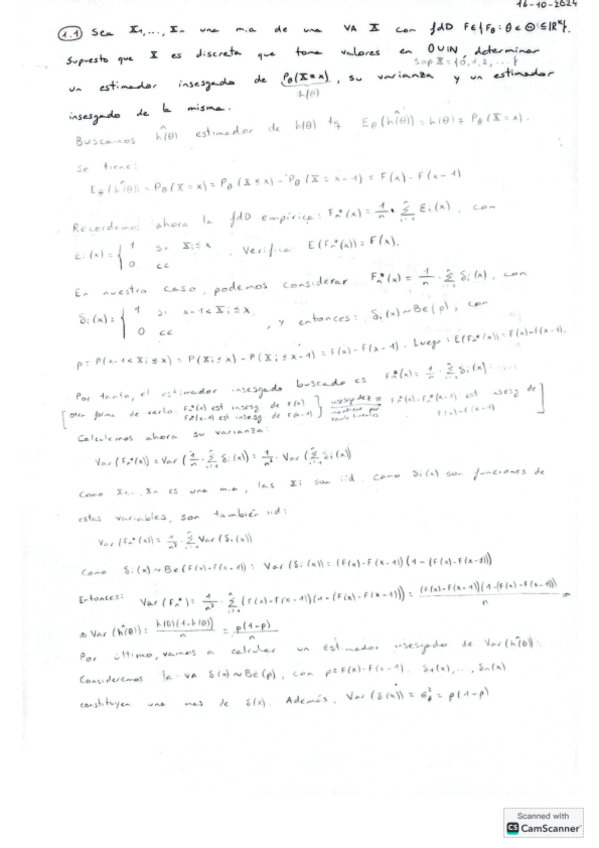 16-10-2024
1.1 Sea X1,..., Xn una m.a de una VA X con fdD F∈{Fθ: θ∈Θ⊆ℝᵏ}.
Supuesto que X es discreta que toma valores en 0UIN, determinar
Sop X = {0,1,2,...}
un estimador insesgado de Pθ(X=x), su varianza y un estimador
h(θ)
insesgado de la misma.
Buscamos ĥ(θ) estimador de h(θ) tq Eθ(ĥ(θ)) = h(θ) = Pθ(X=x).
Se tiene:
Eθ(ĥ(θ)) = Pθ(X=x) = Pθ(X≤x) - Pθ(X≤x-1) = F(x) - F(x-1)
Recordemos ahora la fdD empírica: Fn*(x) = 1/n · Σ εi(x), con
εi(x) = { 1 si Xi≤x
0 cc . Verifica E(Fn*(x)) = F(x).
En nuestro caso, podemos considerar Fn*(x) = 1/n · Σ δi(x), con
δi(x) = { 1 si x-1<Xi≤x
0 cc , y entonces: δi(x)~Be(p), con
p = P(x-1<Xi≤x) = P(Xi≤x) - P(Xi≤x-1) = F(x) - F(x-1). Luego: E(Fn*(x)) = F(x)-F(x-1).
Por tanto, el estimador insesgado buscado es Fn*(x) = 1/n · Σ δi(x).
[otra forma de verlo: Fn*(x) est insesg de F(x)
Fn*(x-1) est insesg de F(x-1) } insesgadez se Fn*(x)-Fn*(x-1) est insesg de
F(x)-F(x-1)]
Calculemos ahora su varianza:
Var(Fn*(x)) = Var(1/n · Σ δi(x)) = 1/n² · Var(Σ δi(x))
Como X1,..., Xn es una m.a, las Xi son iid. Como δi(x) son funciones de
estas variables, son también iid:
Var(Fn*(x)) = 1/n² · Σ Var(δi(x))
Como δi(x)~Be(F(x)-F(x-1)): Var(δi(x)) = (F(x)-F(x-1))(1-(F(x)-F(x-1)))
Entonces: Var(Fn*) = 1/n² · Σ (F(x)-F(x-1))(1-(F(x)-F(x-1))) = (F(x)-F(x-1))(1-(F(x)-F(x-1)))/n
Var(ĥ(θ)) = h(θ)(1-h(θ))/n = p(1-p)/n
Por último, vamos a calcular un estimador insesgado de Var(ĥ(θ)):
Consideremos la VA δ(x)~Be(p), con p=F(x)-F(x-1). δ1(x),..., δn(x)
constituyen una mas de δ(x). Además, Var(δ(x)) = σ² = p(1-p)
Scanned with
CS CamScanner